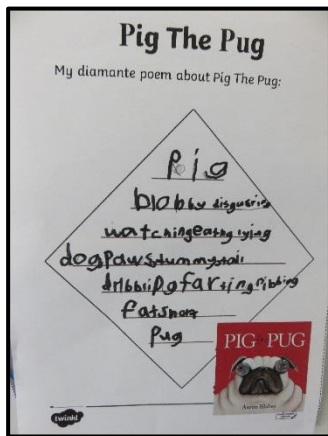 Pig The Pug
My diamante poem about Pig The Pug:
Pig
blobby disgusting
watching eating lying
dog paws tummy tail
dribbling farting fibbing
fat snore
Pug
PIG PUG
Aaron Blabey
twinkl